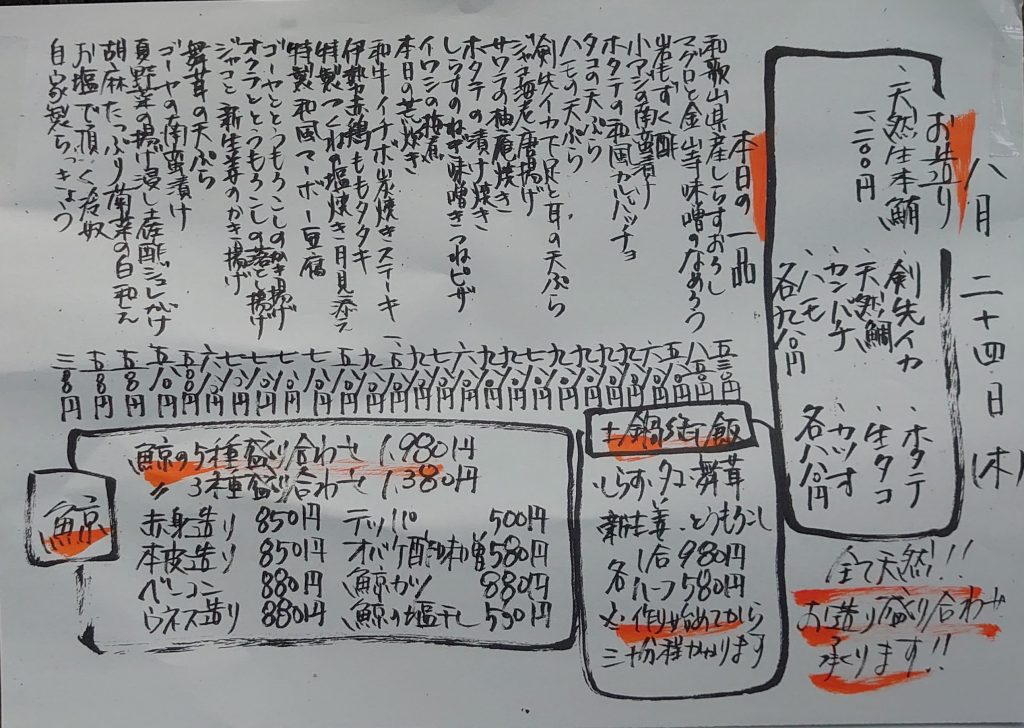 八月 二十四日(木)
お造り
、天然生本鮪
一、二〇〇円
、剣先イカ
、天然鯛
、カンパチ
、ハモ
各九八〇円
、ホタテ
、生タコ
、カツオ
各八八〇円
全て天然!!
お造り盛り合わせ
承ります!!
本日の一品
和歌山県産しらすおろし 五三〇円
マグロと金山寺味噌のなめろう 八五〇円
岩もずく酢 五八〇円
小アジの南蛮漬け 六八〇円
ホタテの和風カルパッチョ 九八〇円
タコの天ぷら 九八〇円
ハモの天ぷら 九八〇円
剣先イカ下足と耳の天ぷら 九八〇円
ジャコ海老唐揚げ
サワラの柚庵焼き
ホタテの漬け焼き
しらすのねぎ味噌きつねピザ
イワシの梅煮
本日の荒炊き
和牛イチボ炭焼きステーキ
伊勢赤鶏ももタタキ
特製つくねの塩焼き月見添え
特製和風マーボー豆腐
ゴーヤととうもろこしのかき揚げ
オクラととうもろこしの落とし揚げ
ジャコと新生姜のかき揚げ
舞茸の天ぷら
ゴーヤの南蛮漬け
夏野菜の揚げ浸し土佐酢ジュレがけ
胡麻たっぷり青菜の白和え 五八〇円
お塩で頂く冷奴 五八〇円
自家製らっきょう 三八〇円
土鍋炊き飯
、しらす、タコ、舞茸
新生姜、とうもろこし
各 1合 980円
ハーフ 580円
※作り始めてから
三十分程かかります
鯨
鯨の5種盛り合わせ 1,980円
〃 3種盛り合わせ 1,380円
赤身造り 850円 テッパロ 500円
本皮造り 850円 オバケ酢味噌 580円
ベーコン 880円 鯨カツ 880円
ウネス造り 880円 鯨の塩干し 550円